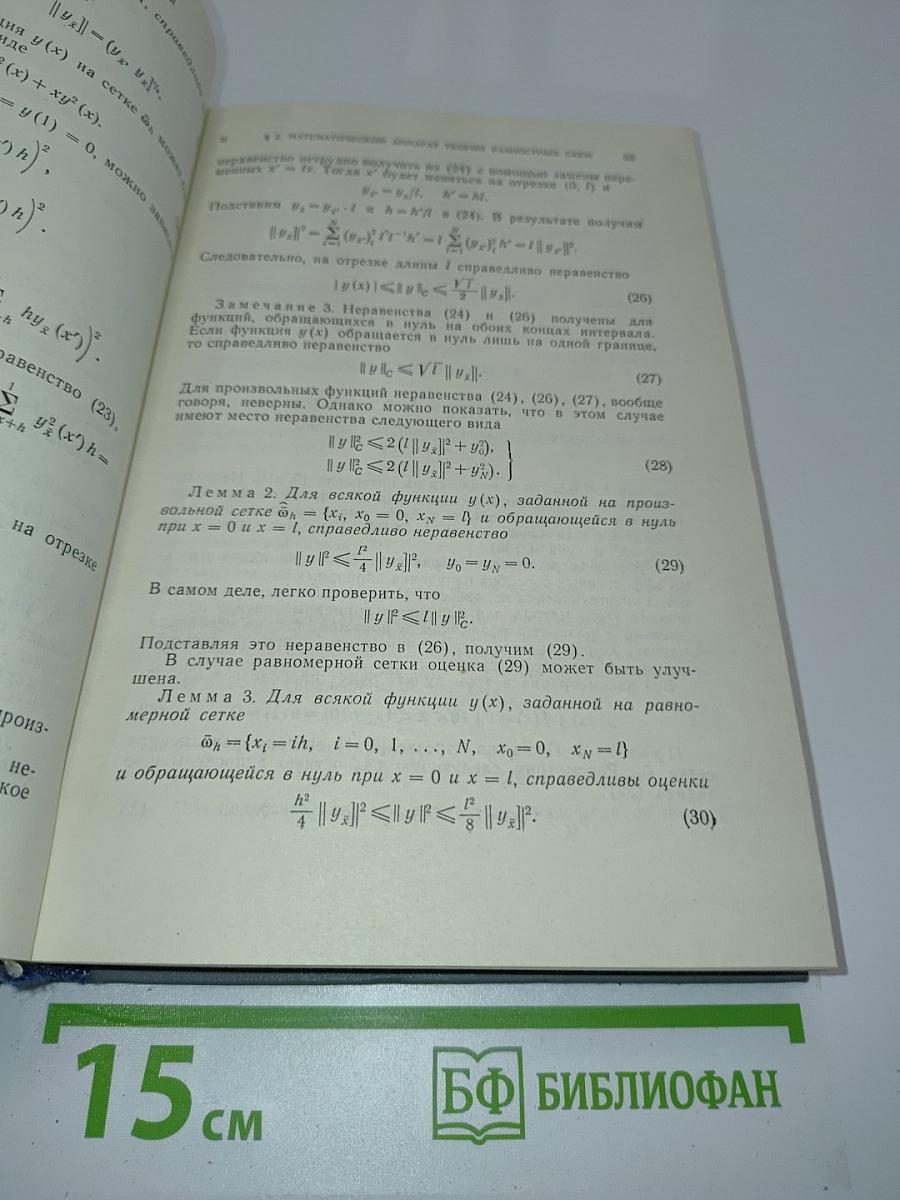 , справедливо
‖y_x̄]| = (y_x̄, y_x̄]^½.
ция y(x) на сетке ω̄_h может
виде
²(x) + xy²(x).
= y(1) = 0, можно запис
') h)²,
') h)².
hy_x̄(x'))².
равенство (23),
∑ y²_x̄(x') h =
на отрезке
произ-
не-
кое
§ 2. МАТЕМАТИЧЕСКИЙ АППАРАТ ТЕОРИИ РАЗНОСТНЫХ СХЕМ
неравенство нетрудно получить из (24) с помощью замены пере-
менных x' = lx. Тогда x' будет меняться на отрезке (0, l) и
Подставим y_x̄ = y_x̄' · l и h = h'/l в (24). В результате получим
‖y_x̄]|² = ∑_{i=1}^{N} (y_x̄')²_i l² l⁻¹ h' = l ∑_{i=1}^{N} (y_x̄')²_i h' = l ‖y_x̄']|².
Следовательно, на отрезке длины l справедливо неравенство
|y(x)| ⩽ ‖y‖_C ⩽ √l/2 ‖y_x̄]|. (26)
Замечание 3. Неравенства (24) и (26) получены для
функций, обращающихся в нуль на обоих концах интервала.
Если функция y(x) обращается в нуль лишь на одной границе,
то справедливо неравенство
‖y‖_C ⩽ √l ‖y_x̄]|. (27)
Для произвольных функций неравенства (24), (26), (27), вообще
говоря, неверны. Однако можно показать, что в этом случае
имеют место неравенства следующего вида
‖y‖²_C ⩽ 2(l‖y_x̄]|² + y²_0),
‖y‖²_C ⩽ 2(l‖y_x̄]|² + y²_N). } (28)
Лемма 2. Для всякой функции y(x), заданной на произ-
вольной сетке ω̄̂_h = {x_i, x_0 = 0, x_N = l} и обращающейся в нуль
при x = 0 и x = l, справедливо неравенство
‖y‖² ⩽ l²/4 ‖y_x̄]|², y_0 = y_N = 0. (29)
В самом деле, легко проверить, что
‖y‖² ⩽ l‖y‖²_C.
Подставляя это неравенство в (26), получим (29).
В случае равномерной сетки оценка (29) может быть улуч-
шена.
Лемма 3. Для всякой функции y(x), заданной на равно-
мерной сетке
ω̄_h = {x_i = ih, i = 0, 1, ..., N, x_0 = 0, x_N = l}
и обращающейся в нуль при x = 0 и x = l, справедливы оценки
h²/4 ‖y_x̄]|² ⩽ ‖y‖² ⩽ l²/8 ‖y_x̄]|². (30)
15 см
БФ БИБЛИОФАН